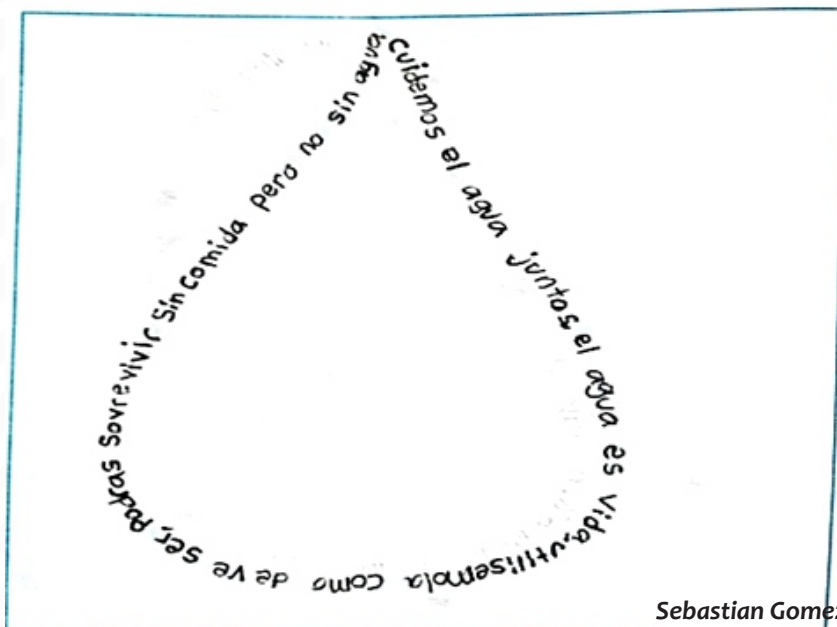 cuidemos el agua juntos, el agua es vida, utilisemola como deve ser, podras sovrevivir sin comida pero no sin agua
Sebastian Gomez